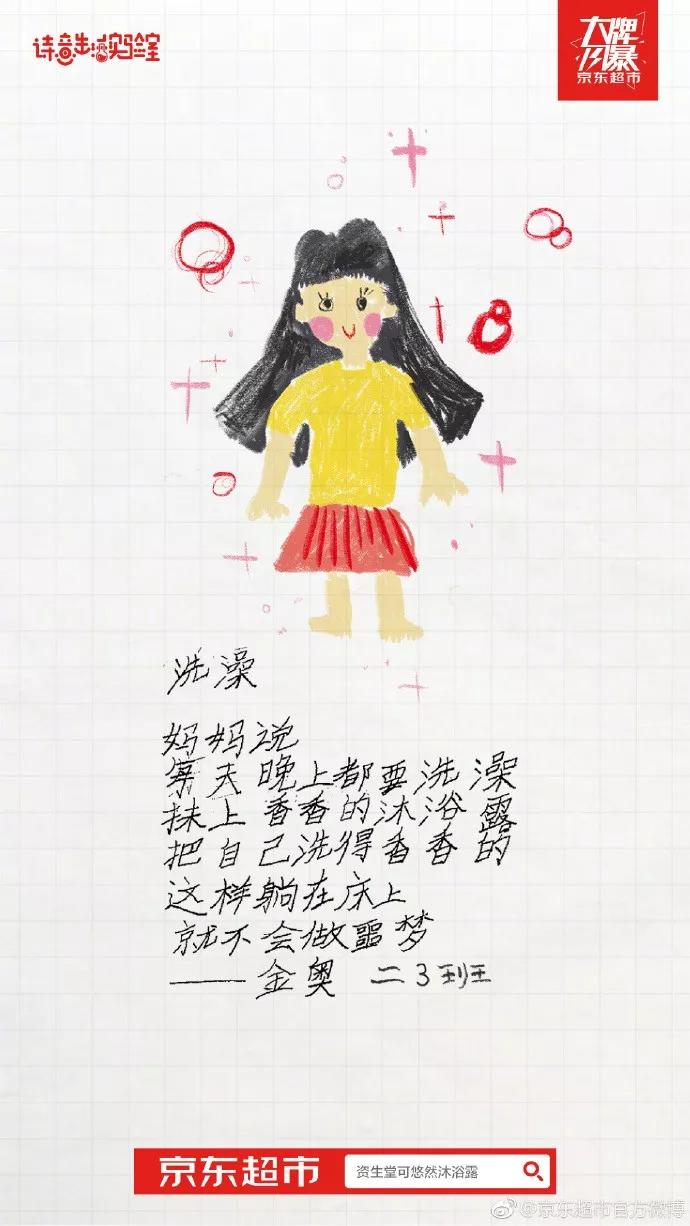 诗意生活实验室
大牌
风暴
京东超市
洗澡
妈妈说
每天晚上都要洗澡
抹上香香的沐浴露
把自己洗得香香的
这样躺在床上
就不会做噩梦
——金奥 二3班
京东超市 资生堂可悠然沐浴露
@京东超市官方微博